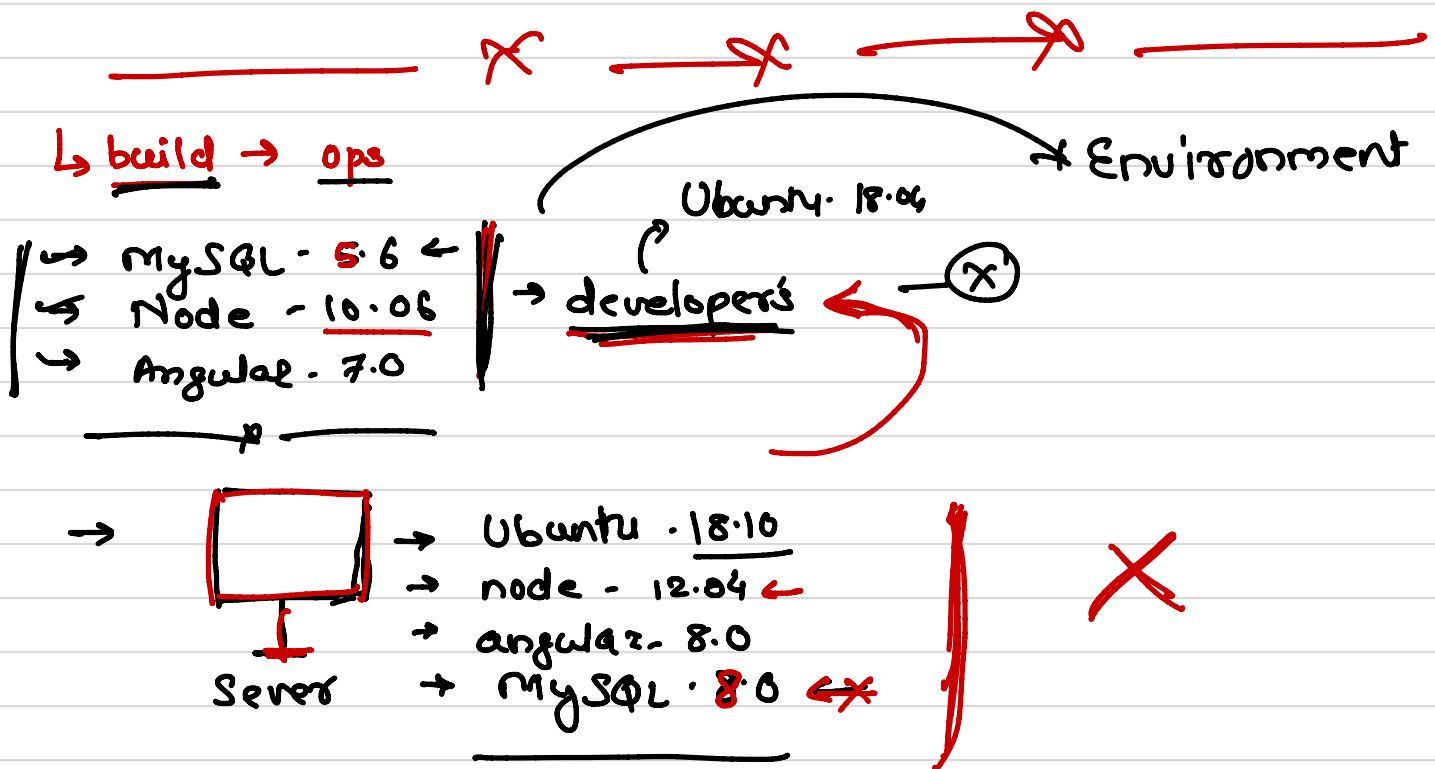 ↳ build → ops
→ Environment
Ubuntu. 18.04
→ MySQL - 5.6 ←
→ Node - 10.06
→ Angular - 7.0
→ developer's
x
→ Ubuntu . 18.10
→ node - 12.04 ←
→ angular - 8.0
Sever
→ MySQL . 8.0 ←x